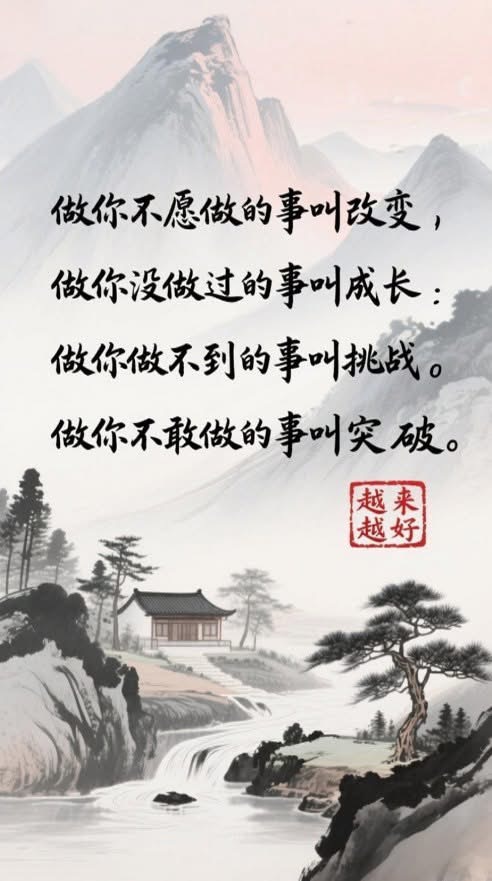 做你不愿做的事叫改变，
做你没做过的事叫成长：
做你做不到的事叫挑战。
做你不敢做的事叫突破。
越来
越好